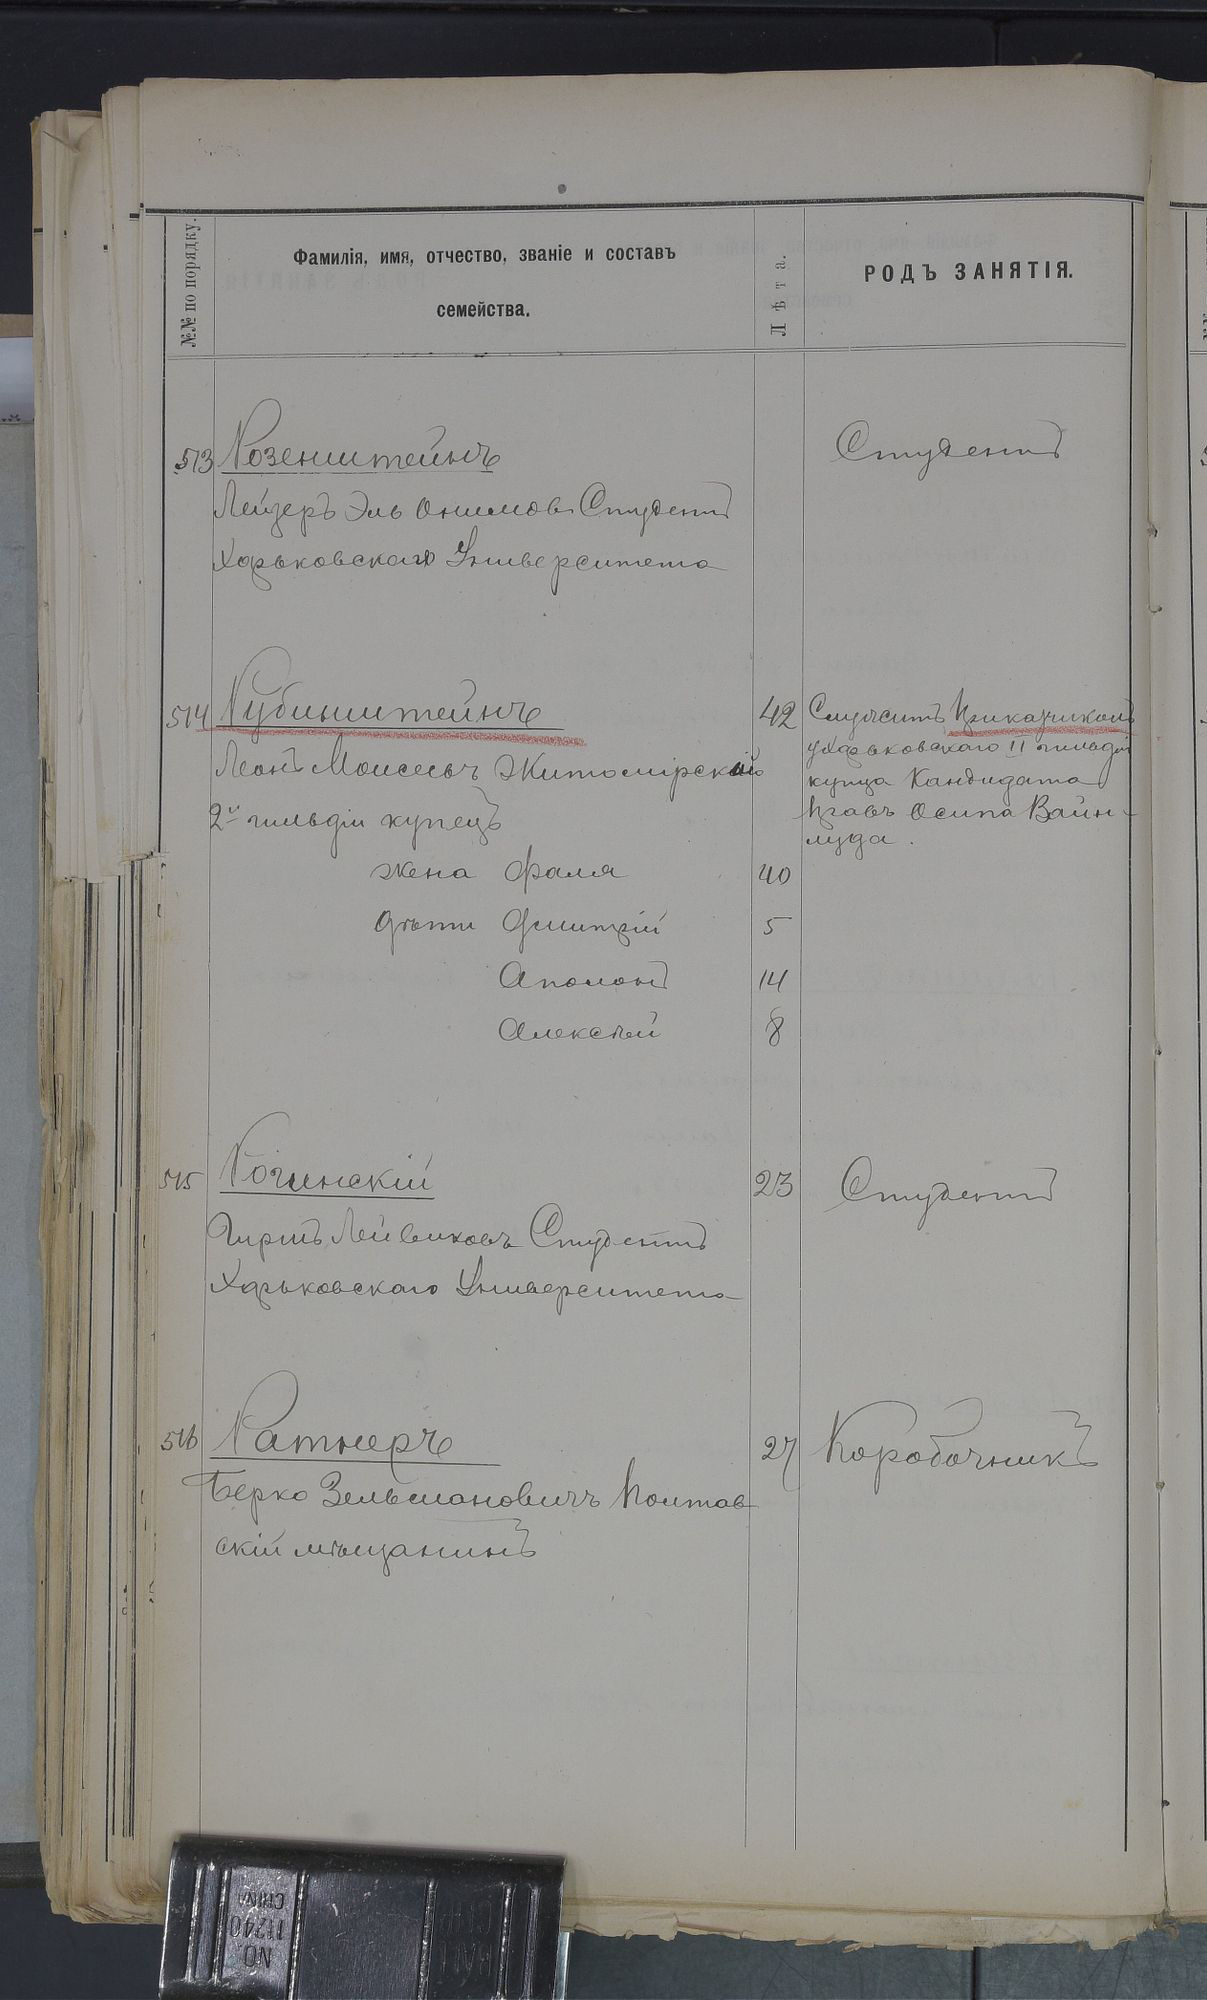 №№ по порядку.
Фамилія, имя, отчество, званіе и составъ
семейства.
Лѣта.
РОДЪ ЗАНЯТІЯ.
513 Розенштейнъ Студентъ
Лейзеръ Эль Студентъ
Харьковскаго Университета
514 Рубинштейнъ 42 Служитъ Приказчикомъ
Леонъ Моисеевъ Житомірскій у Харьковскаго II гильдіи
2й гильдіи купецъ купца Кандидата
Правъ Осипа Вайн-
луда.
жена Фаля 40
дѣти Дмитрій 5
Аполонъ 14
Алексѣй 8
515 Рогинскій 23 Студентъ
Гиршъ Лейвиковъ Студентъ
Харьковскаго Университета
516 Ратнеръ 27 Коробочникъ
Берко Зельмановичъ Полтав
скій мѣщанинъ
NO.
11240
CHINA